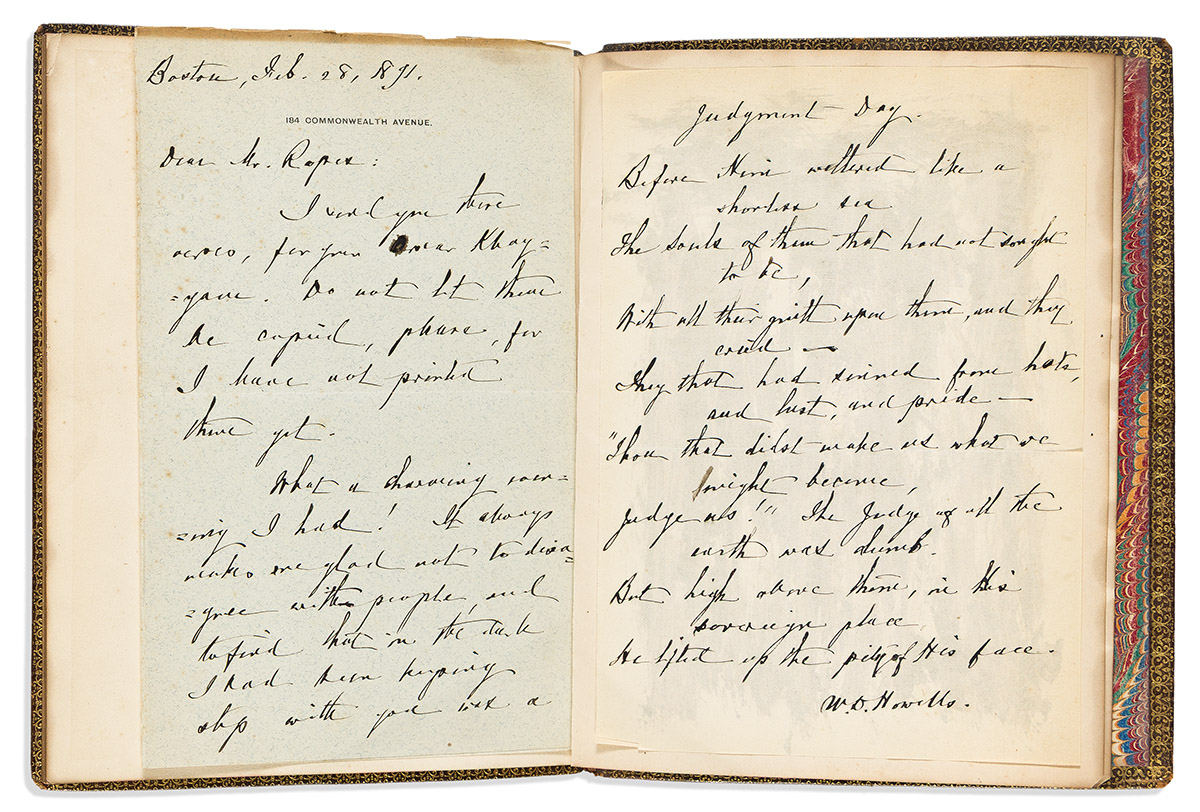 Boston, Feb. 28, 1891.
184 COMMONWEALTH AVENUE.
Dear Mr. Ropes:
I send you these
verses, for your Omar Khay=
=yam. Do not let them
be copied, please, for
I have not printed
them yet.
What a charming even=
=ing I had! It always
makes me glad not to disa=
=gree with people, and
to find that in the dark
I had been keeping
step with you was a
Judgment Day.
Before Him weltered like a
shorless sea
The souls of them that had not sought
to be,
With all their guilt upon them, and they
cried —
They that had sinned from hate,
and lust, and pride —
"Thou that didst make us what we
might become,
Judge us!" The Judge of all the
earth was dumb.
But high above them, in His
sovereign place
He lifted up the pity of His face.
W.D. Howells.